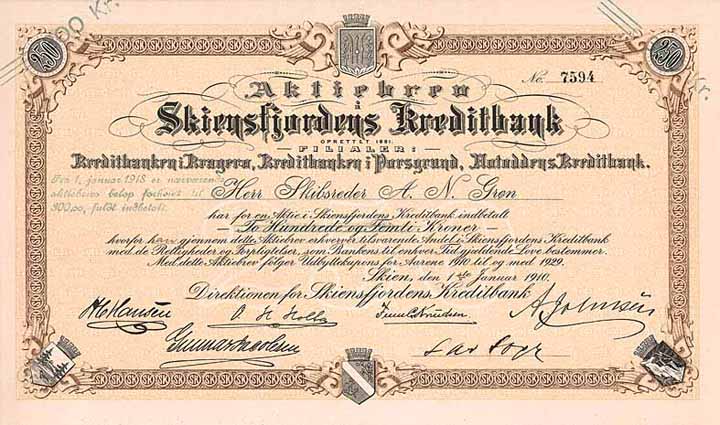 250
250
No. 7594
Aktiebrev
å
Skiensfjordens Kreditbank
OPRETTET 1881.
FILIALER:
Kreditbanken i Kragerø, Kreditbanken i Porsgrund, Notoddens Kreditbank.
Fra 1. januar 1918 er nærværende
aktiebrevs beløp forhøiet til
300,00, fuldt indbetalt.
Herr Skibsreder A. N. Grøn
har for en Aktie i Skiensfjordens Kreditbank indbetalt
To Hundrede og Femti Kroner
hvorfor han gjennem dette Aktiebrev erhverver tilsvarende Andel i Skiensfjordens Kreditbank
med de Rettigheder og Forpligtelser, som Bankens til enhver Tid gjældende Love bestemmer.
Med dette Aktiebrev følger Udbyttekupons for Aarene 1910 til og med 1929.
Skien, den 1ste Januar 1910.
Direktionen for Skiensfjordens Kreditbank